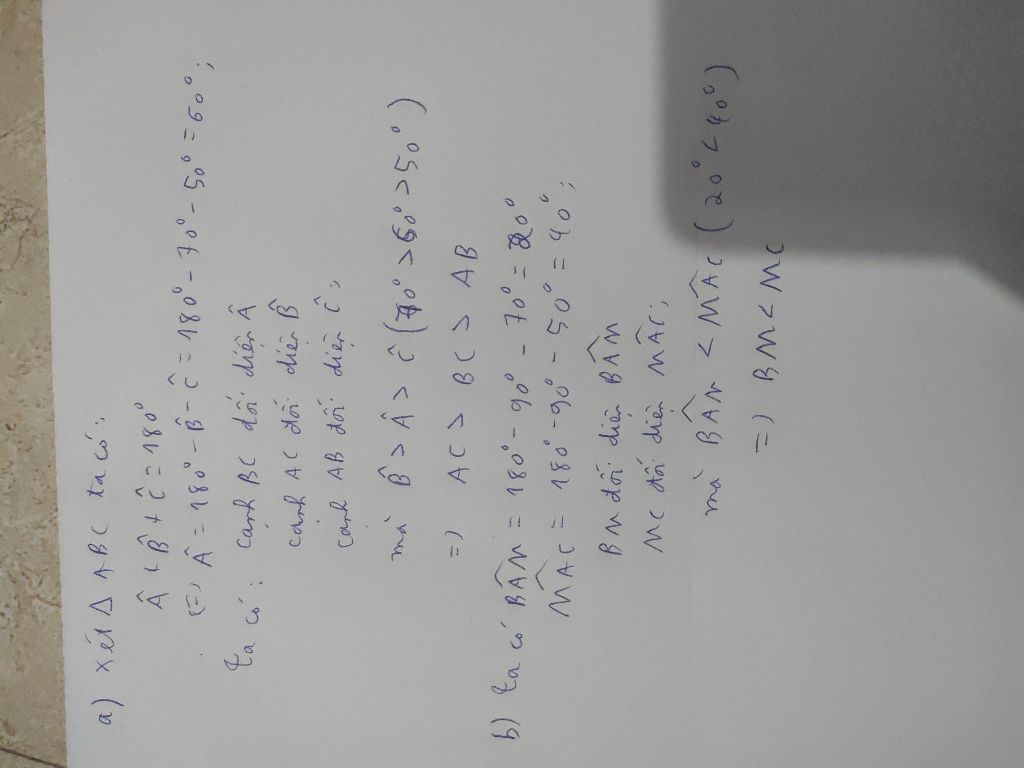 a) xét Δ ABC ta có:
Â + B̂ + Ĉ = 180°
(=) Â = 180° - B̂ - Ĉ = 180° - 70° - 50° = 60°;
ta có: cạnh BC đối diện Â
cạnh AC đối diện B̂
cạnh AB đối diện Ĉ;
mà B̂ > Â > Ĉ (70° > 60° > 50°)
=) AC > BC > AB
b) ta có BÂM = 180° - 90° - 70° = 20°
MÂC = 180° - 90° - 50° = 40°;
BM đối diện BÂM
MC đối diện MÂC;
mà BÂM < MÂC (20° < 40°)
=) BM < MC